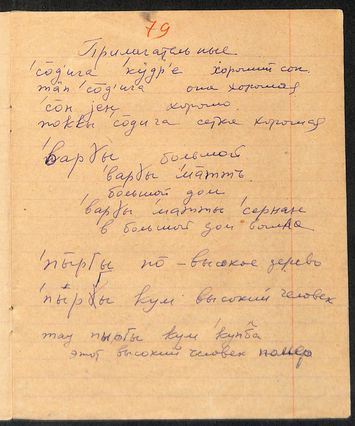 79
Прилигательные
'сōдига 'кӱдр'е хороший сон.
тап 'сōдига она хорошая
'сон jен хорошо
поквы 'сōдига сетка хорошая
'варɣы большой
'варɣы 'маттъ
большой дом
'варɣы 'матты 'сернан
в большой дом
'пырɣы по - высокое дерево
'пырɣы кум высокий человек
тау пырɣы кум 'куп̄ба
этот высокий человек помер